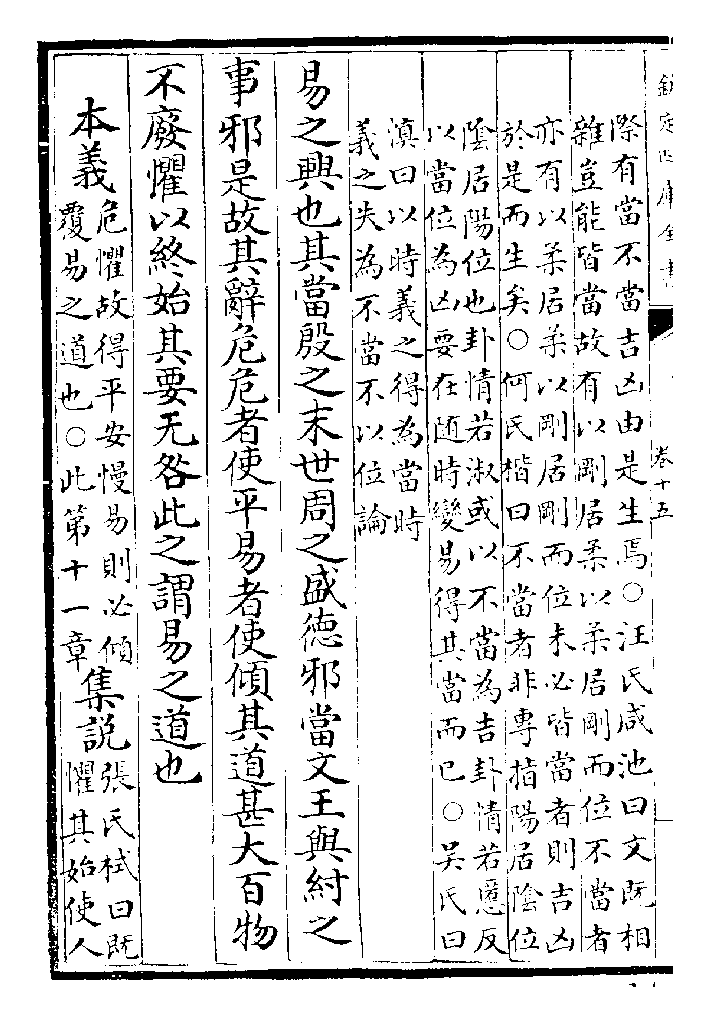 欽定四庫全書
卷十五
際有當不當吉凶由是生焉○汪氏咸池曰文既相
雜豈能皆當故有以剛居柔以柔居剛而位不當者
亦有以柔居柔以剛居剛而位未必皆當者則吉凶
於是而生矣○何氏楷曰不當者非專指陽居陰位
陰居陽位也卦情若淑或以不當為吉卦情若慝反
以當位為凶要在随時變易得其當而已○吴氏曰
慎曰以時義之得為當時
義之失為不當不以位論
易之興也其當殷之末世周之盛德邪當文王與紂之
事邪是故其辭危危者使平易者使傾其道甚大百物
不廢懼以終始其要无咎此之謂易之道也
本義
危懼故得平安慢易則必傾
覆易之道也○此第十一章
集說
張氏栻曰既
懼其始使人